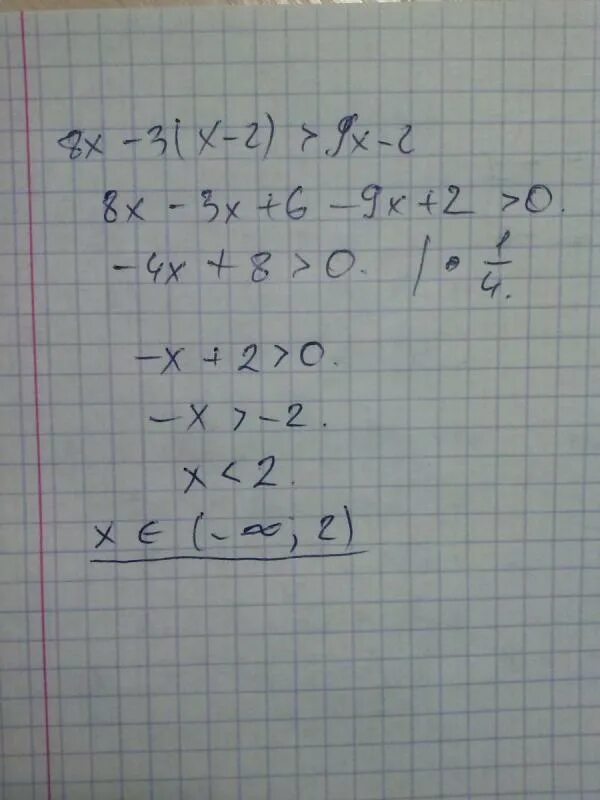 8x - 3(x-2) > 9x-2
8x - 3x + 6 - 9x + 2 > 0.
-4x + 8 > 0. | • 1/4.
-x + 2 > 0.
-x > -2.
x < 2.
x ∈ (-∞; 2)